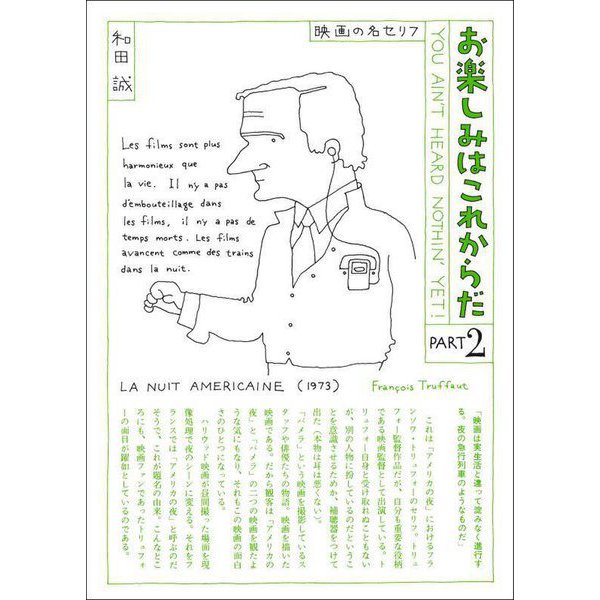 和田 誠
映画の名セリフ
お楽しみはこれからだ
YOU AIN'T HEARD NOTHIN' YET!
PART2
Les films sont plus
harmonieux que
la vie. Il n'y a pas
d'embouteillage dans
les films, il n'y a pas de
temps morts. Les films
avancent comme des trains
dans la nuit.
LA NUIT AMERICAINE (1973)
François Truffaut
「映画は実生活と違って淀みなく進行す
る。夜の急行列車のようなものだ」
これは「アメリカの夜」におけるフラ
ンソワ・トリュフォーのセリフ。トリュ
フォー監督作品だが、自分も重要な役柄
である映画監督として出演している。ト
リュフォー自身と受け取れぬこともない
が、別の人物に扮しているのだというこ
とを意識させるためか、補聴器をつけて
出た(本物は耳は悪くない)。
「パメラ」という映画を撮影しているス
タッフや俳優たちの物語。映画を描いた
映画である。だから観客は「アメリカの
夜」と「パメラ」の二つの映画を観たよ
うな気にもなり、それもこの映画の面白
さのひとつになっている。
ハリウッド映画が昼間撮った場面を現
像処理で夜のシーンに変える、それをフ
ランスでは「アメリカの夜」と呼ぶのだ
そうで、これが題名の由来。こんなとこ
ろにも、映画ファンであったトリュフォ
ーの面目が躍如としているのである。